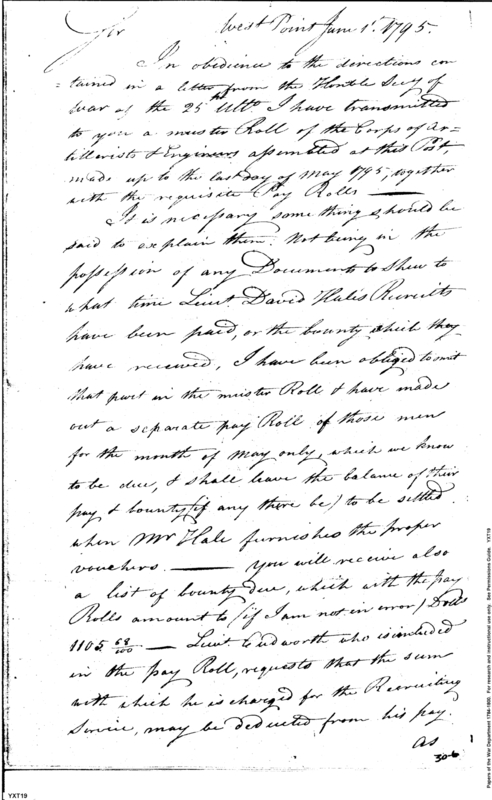 Sir West Point June 1st. 1795.
In obedience to the directions con
=tained in a letter from the Honble Secy of
War of the 25th Ulto. I have transmitted
to you a muster Roll of the Corps of Ar=
tillerists & Engineers assembled at this Post,
made up to the last day of May 1795, together
with the requisite Pay Rolls ———
It is necessary some thing should be
said to explain them. Not being in the
possession of any Documents to shew to
what time Lieut. David Hales Recruits
have been paid, or the bounty which they
have received, I have been obliged to omit
that part in the muster Roll & have made
out a separate pay Roll of those men
for the month of May only, which we know
to be due, & shall leave the balance of their
pay & bounty (if any there be) to be settled
when Mr Hale furnishes the proper
vouchers. ——— you will receive also
a list of bounty due, which with the pay
Rolls amount to (if I am not in error) Dolls
1105 68/100 — Lieut. Cudworth who is included
in the pay Roll, requests that the sum
with which he is charged for the Recruiting
Service, may be deducted from his pay.
as
306
YXT19
Papers of the War Department 1784-1800. For research and instructional use only. See Permissions Guide. YXT19